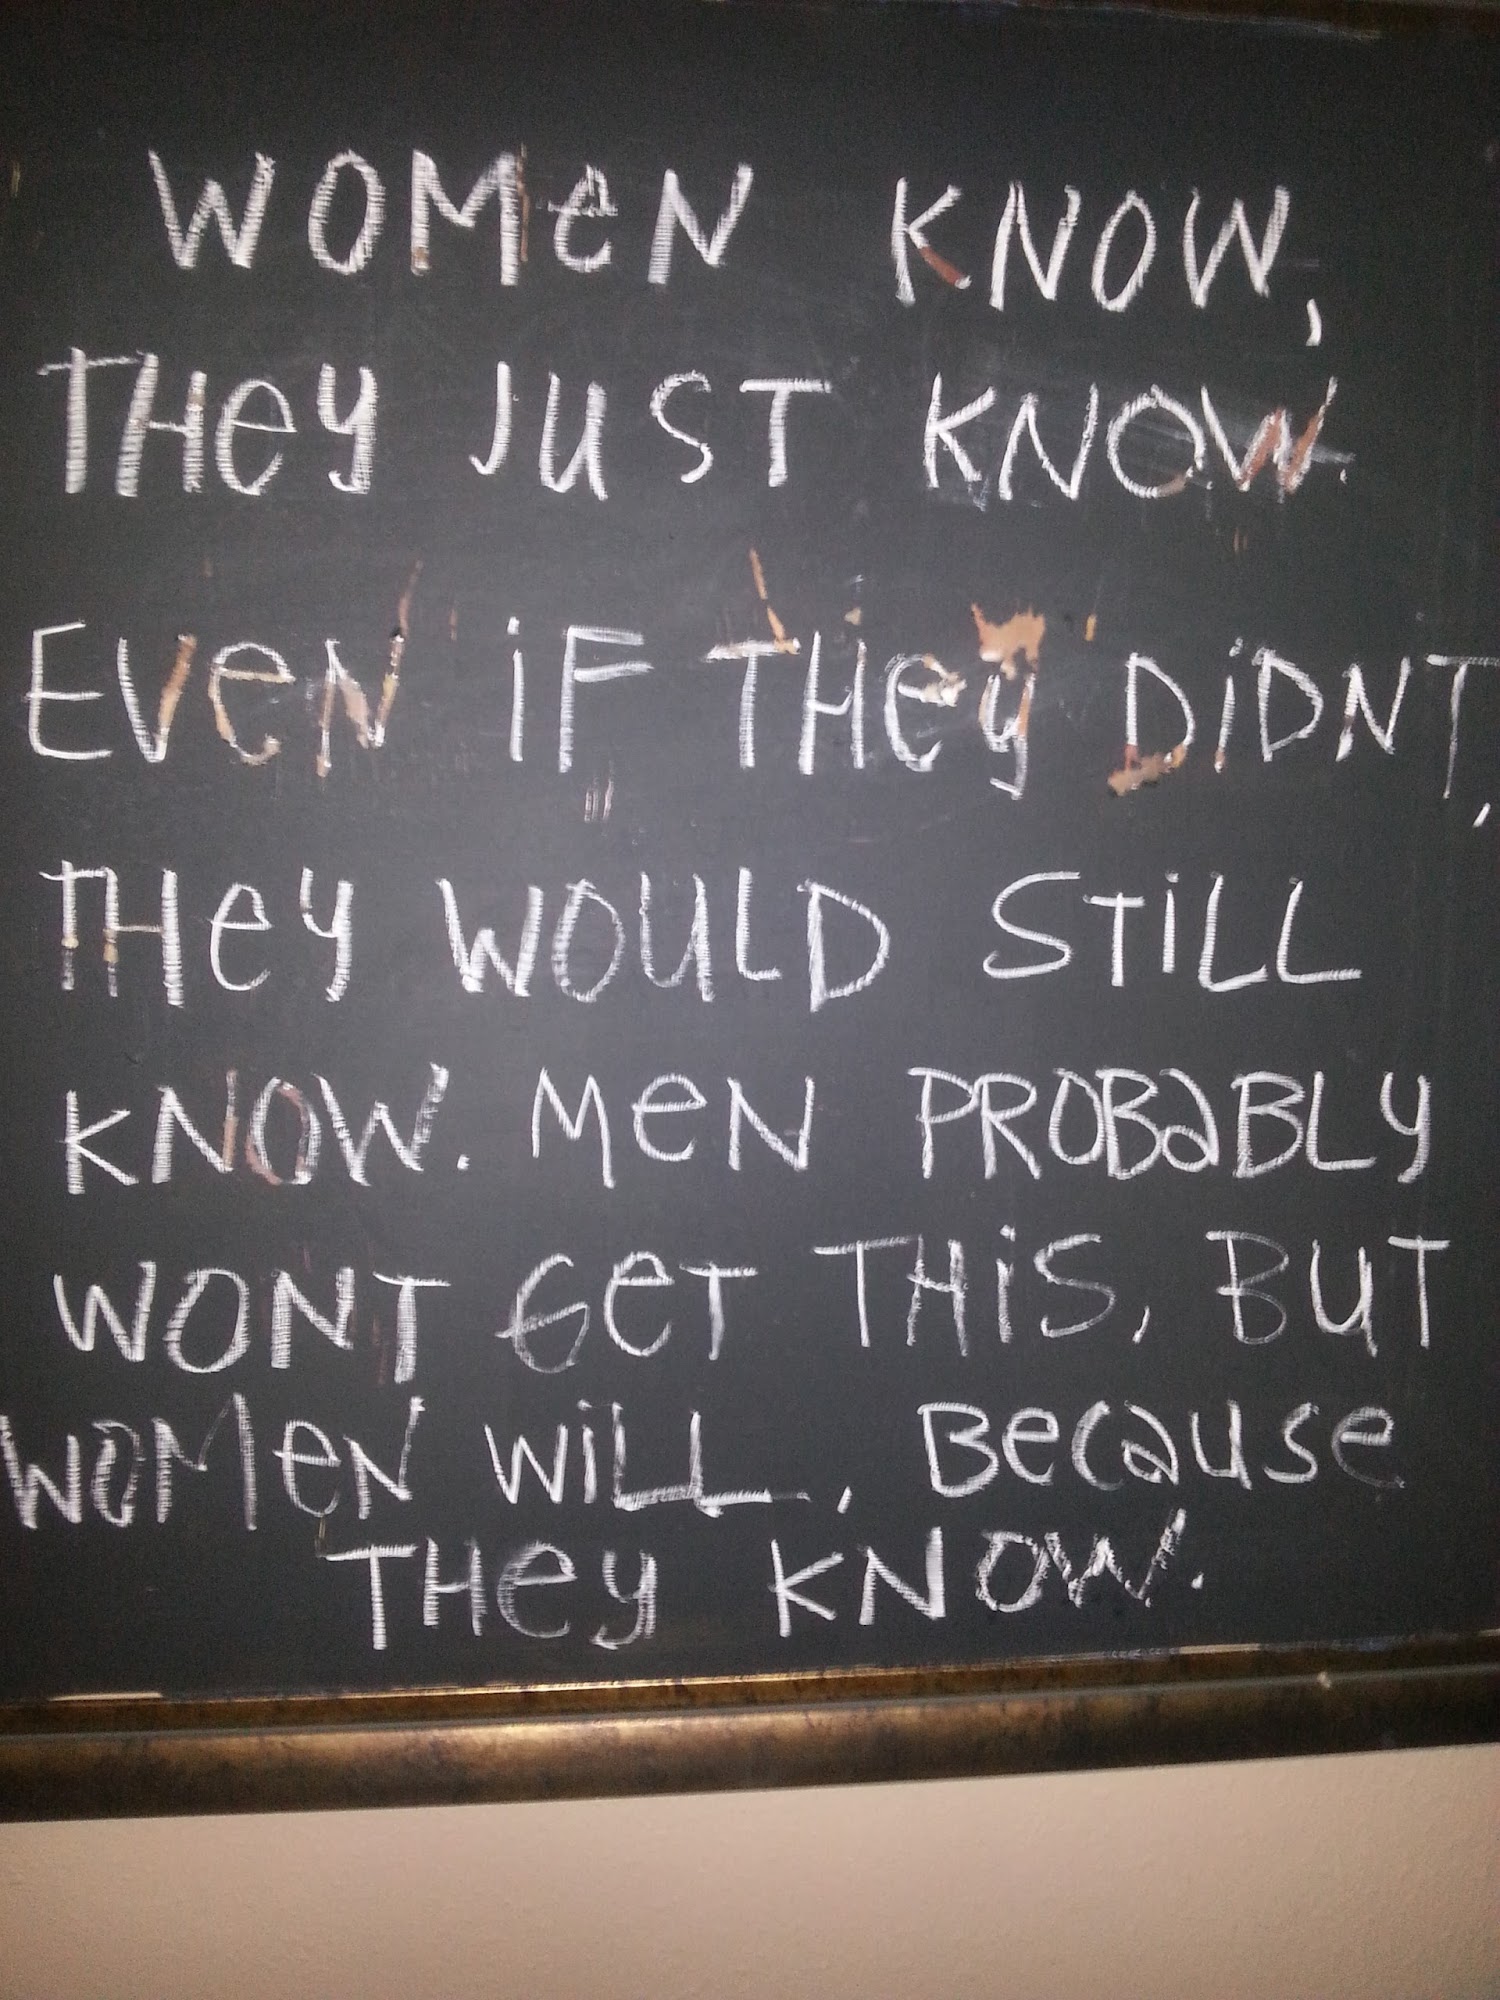 WOMeN KNOW,
THey JUST KNOW.
EVeN iF THey DiDNT,
THey WOULD STiLL
KNOW. MeN PROBaBLy
WONT GeT THiS, BUT
WOMeN WiLL, Because
THey KNOW.